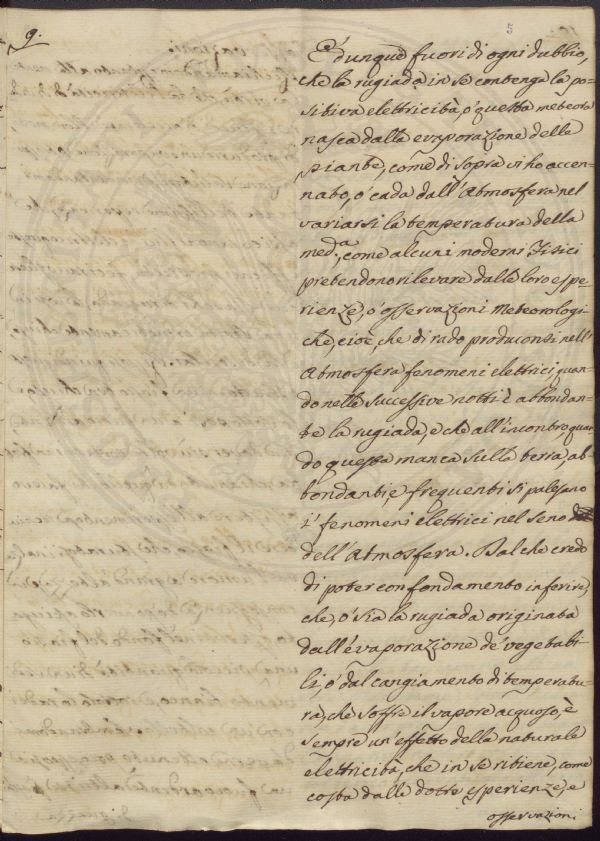 9.
5
È dunque fuori di ogni dubbio,
che la rugiada in se contenga la po-
sitiva elettricità, o' questa meteora
nasca dalla evaporazione delle
piante, come di sopra vi ho accen-
nato, o' cada dall'Atmosfera nel
variarsi la temperatura della
med.a, come alcuni moderni Fisici
pretendono rilevare dalle loro espe-
rienze, o' osservazioni Meteorologi-
che, cioè, che di rado produconsi nell'
Atmosfera fenomeni elettrici, quan-
do nelle successive notti è abbondan-
te la rugiada, e che all'incontro, quan-
do questa manca sulla terra, ab-
bondanti, e frequenti si palesano
i' fenomeni elettrici nel seno
dell'Atmosfera. Tal che credo
di poter con fondamento inferire,
che, o' sia la rugiada originata
dall'evaporazione de' vegetabi-
li, o' dal cangiamento di temperatu-
ra, che soffre il vapore acquoso, è
sempre un'effetto della naturale
elettricità, che in se ritiene, come
costa dalle dotte esperienze, e
osservazioni